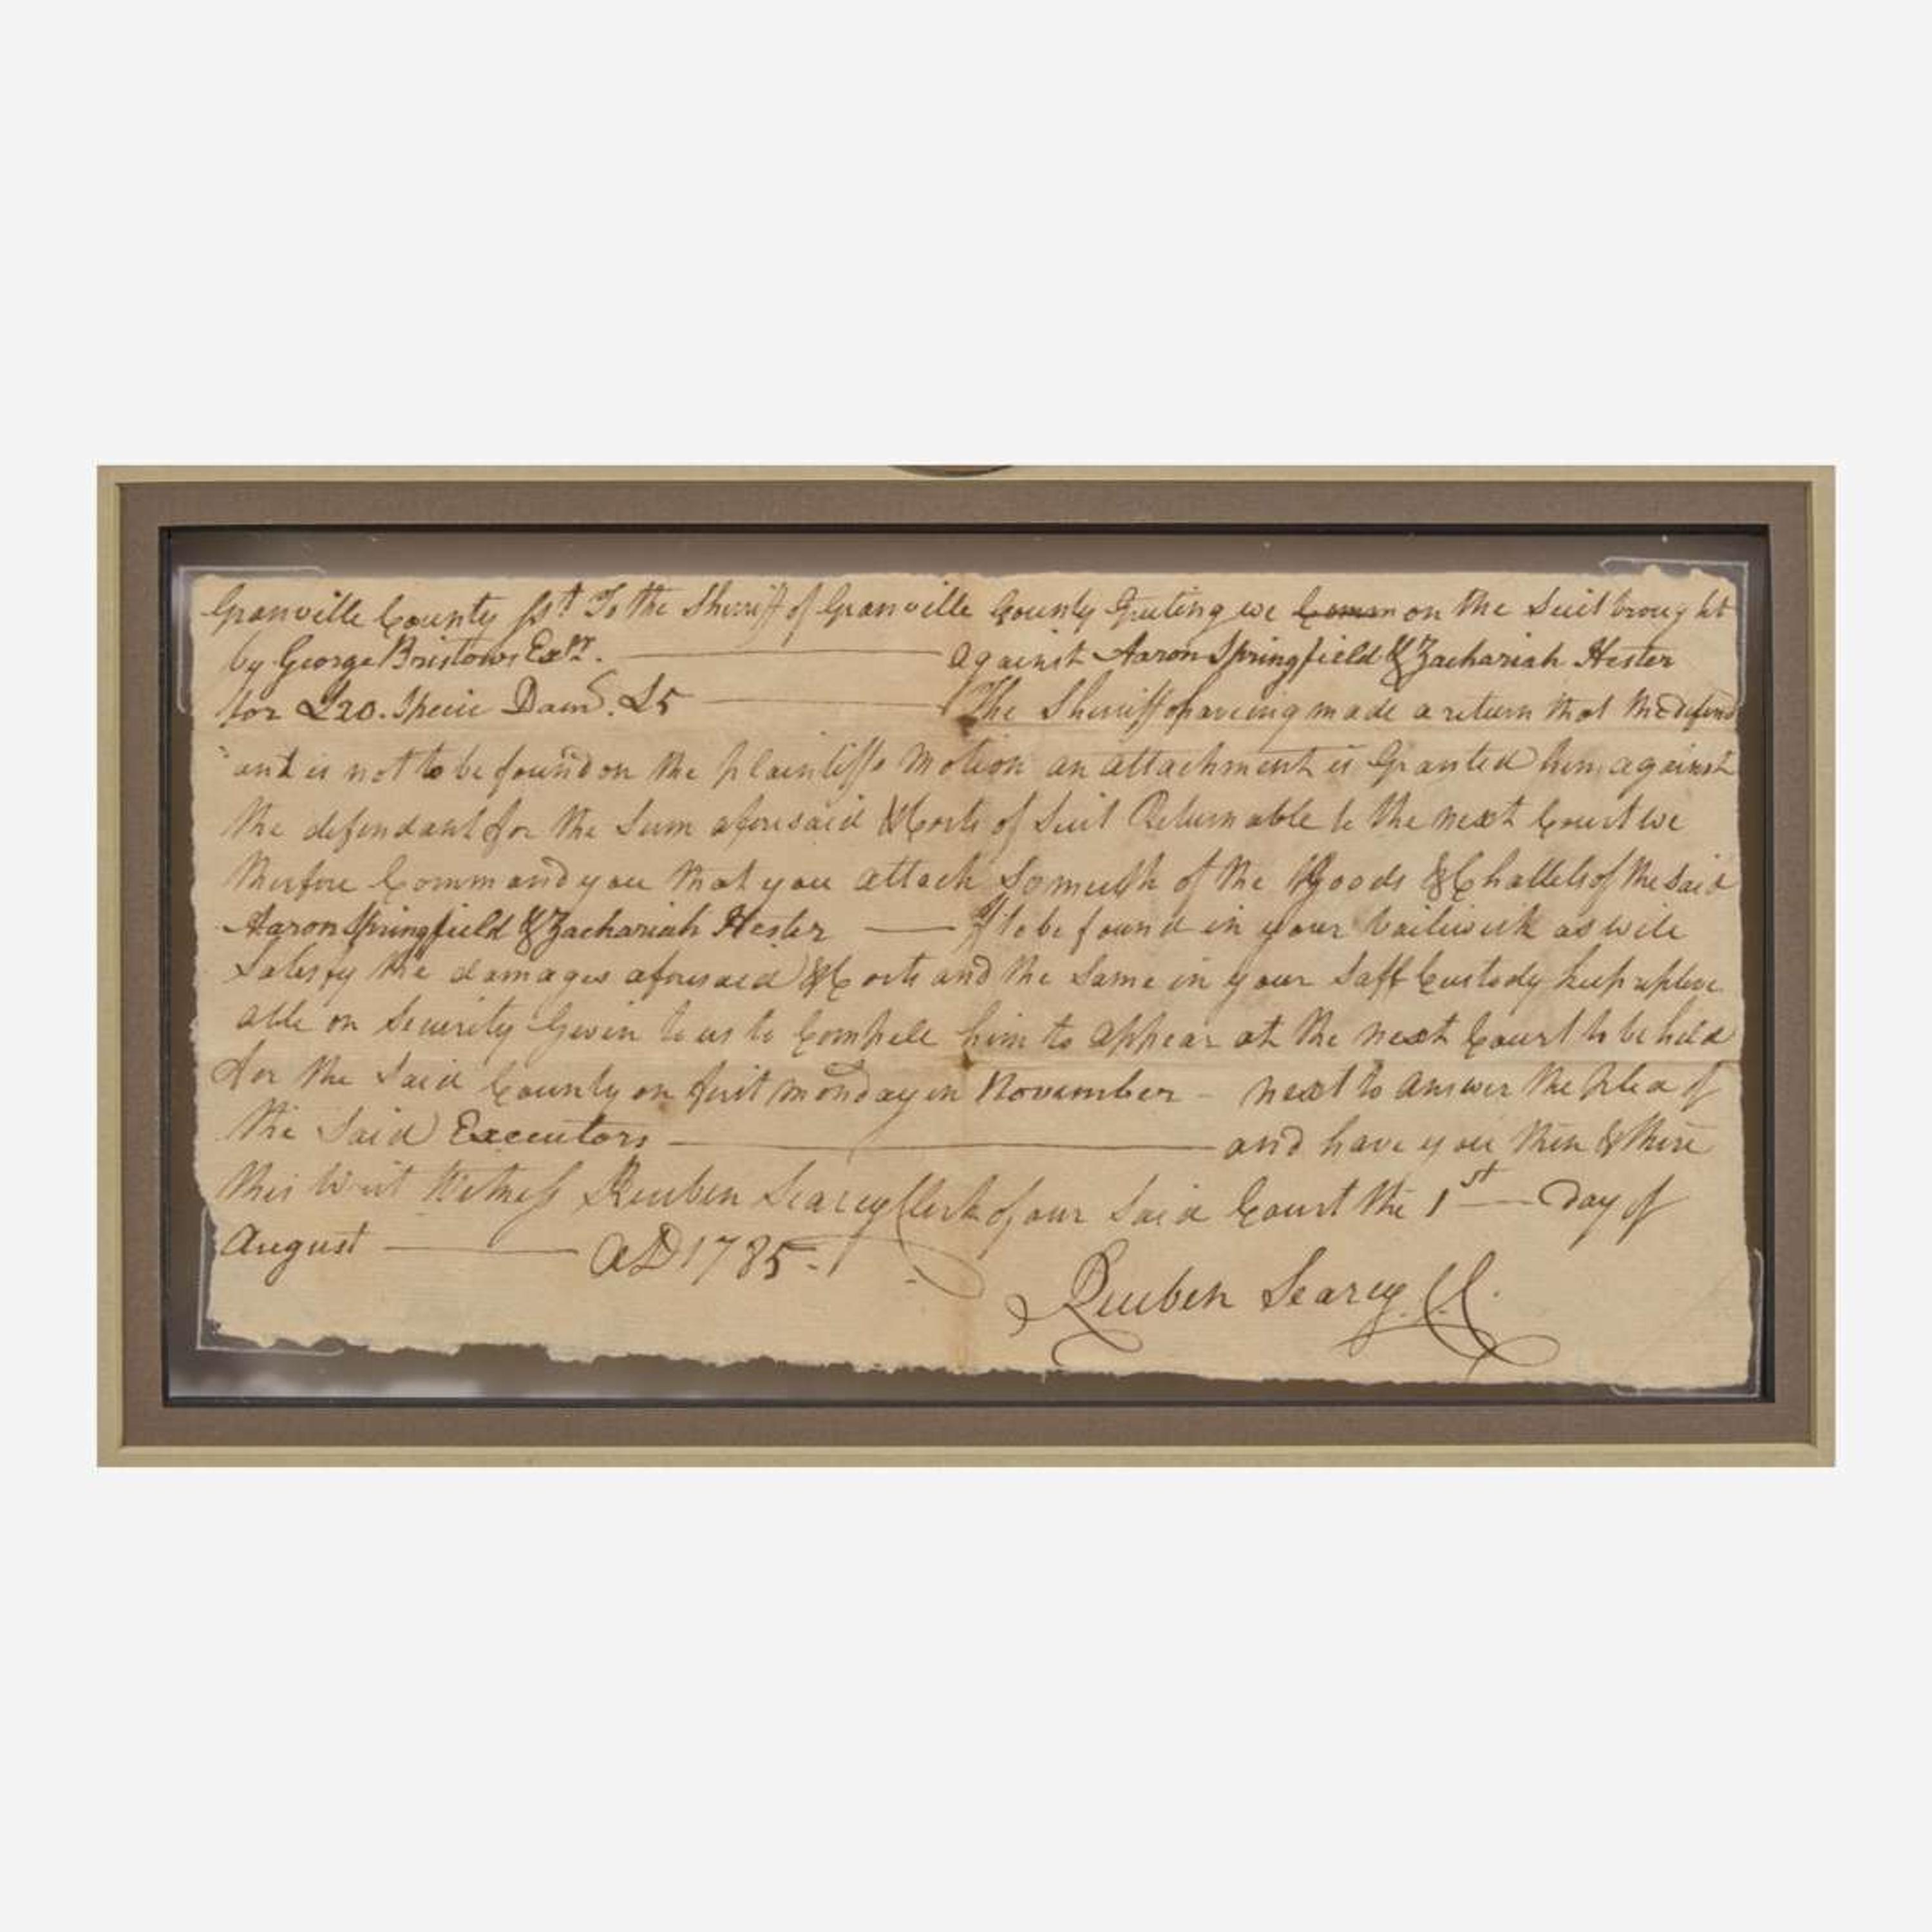 Granville County Sst. To the Sherriff of Granville County Greeting we Comm on the Suit brought
by George Bristows Exrs. against Aaron Springfield & Zachariah Hester
for £20. Specie Dam. £5 The Sherriff having made a return that the defend
ant is not to be found on the plaintiffs Motion an attachment is Granted him against
the defendant for the Sum aforesaid & Costs of Suit Returnable to the next Court we
therfore Command you that you attach So much of the Goods & Chattels of the Said
Aaron Springfield & Zachariah Hester If to be found in your bailiwick as will
Satisfy the damages aforesaid & Costs and the Same in your Saff Custody keep repleve
able on Security Given to us to Compell him to appear at the next Court to be held
for the Said County on first monday in November next to answer the plea of
the Said Executors and have you then & there
this Writ Witness Reuben Searcy Clerk of our Said Court the 1st Day of
August AD 1785.
Reuben Searcy CC.